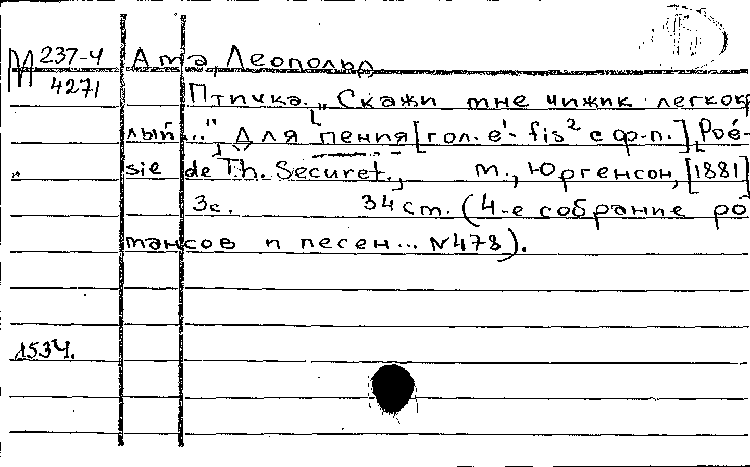 М 237-4 Амэ, Леопольд
4271
Птичка. „Скажи мне чижик легкок
лый..." Для пения [гол. e¹- fis² с ф-п.] Poé-
" sie de Th. Securet. М., Юргенсон, [1881]
3с. 34 см. (4-е собрание ро
мансов и песен... N 478).
1534.